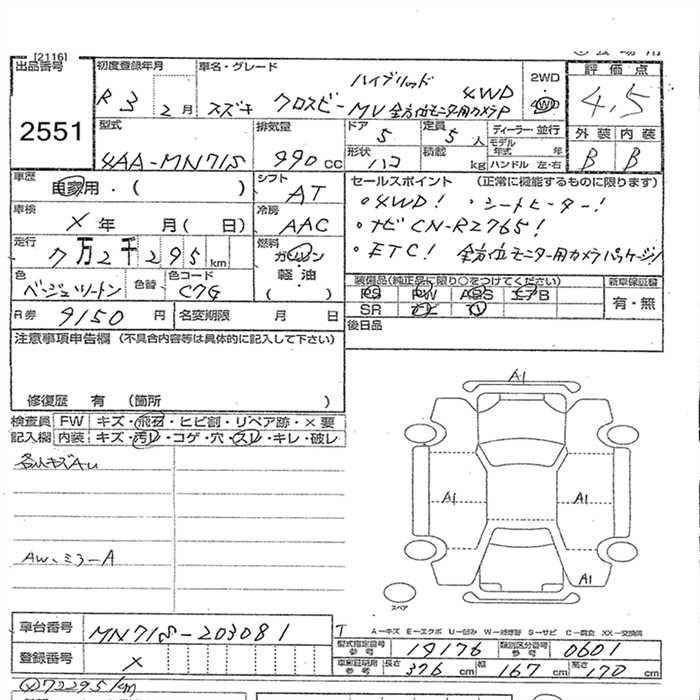 [2116]
出品番号
2551
初度登録年月
R 3 2 月
車名・グレード
ハイブリッド
スズキ クロスビー MV 全方位モニター用カメラP
4WD
2WD
4WD
評価点
4.5
外装 内装
B B
型式
4AA-MN71S
排気量
990 cc
ドア
5
定員
5 人
形状
ハコ
積載
kg
ディーラー・並行
モデル年式 年
ハンドル 左・右
車歴
自家用・( )
シフト
AT
車検
X 年 月 ( 日)
冷房
AAC
走行
7万2千295 km
燃料
ガソリン
軽・油
( )
色
ベージュツートン
色替
色コード
C7G
R券
9150 円
名変期限 月 日
セールスポイント (正常に機能するものに限ります)
・4WD! ・シートヒーター!
・ナビ CN-RZ765!
・ETC! 全方位モニター用カメラパッケージ!
装備品(純正品に限り○をつけてください)
PS PW ABS エアB
SR ナビ
新車保証書
有・無
後日品
注意事項申告欄 (不具合内容等は具体的に記入して下さい)
修復歴 有 (箇所 )
検査員記入欄
FW キズ・飛石・ヒビ割・リペア跡・×要
内装 キズ・汚レ・コゲ・穴・スレ・キレ・破レ
各小キズAu
AW、ミラーA
A1
A1 A1
A1
スペア
車台番号
MN71S-203081
登録番号
X
A-キズ E-エクボ U-凹み W-補修跡 S-サビ C-腐食 XX-交換済
型式指定番号参考
19176
類別区分番号参考
0601
車庫証明用参考
長さ 376 cm 幅 167 cm 高さ 170 cm
72295km